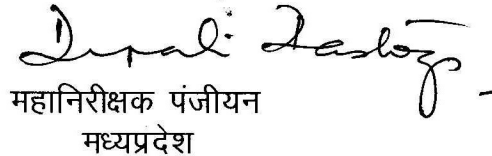 Dipali Rastogi
महानिरीक्षक पंजीयन
मध्यप्रदेश